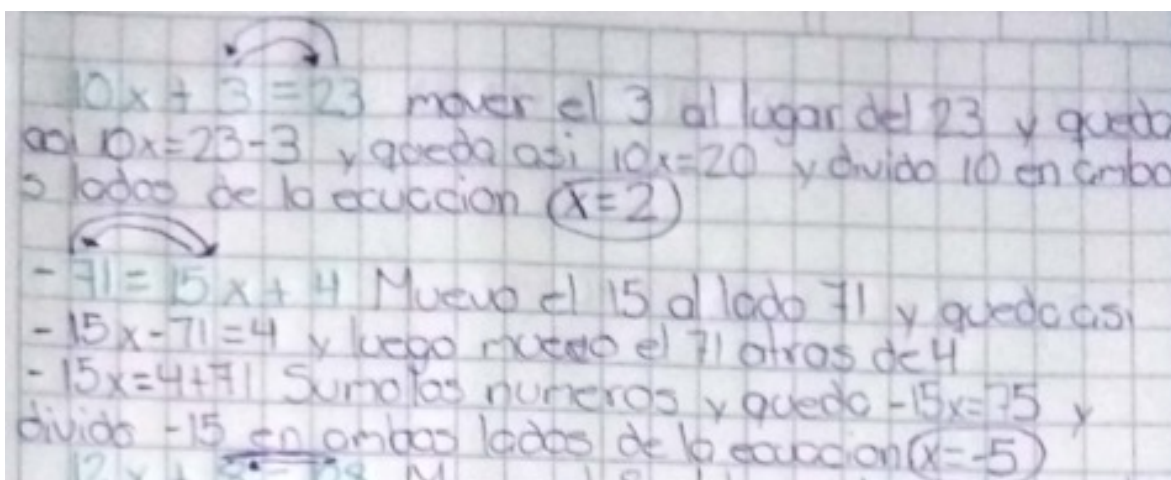 10x + 3 = 23 mover el 3 al lugar del 23 y queda
asi 10x=23-3 y queda asi 10x=20 y divido 10 en ambo
s lados de la ecuccion x=2
-71=15x+4 Muevo el 15 al lado 71 y queda asi
-15x-71=4 y luego muevo el 71 atras de 4
-15x=4+71 Sumo los numeros y queda -15x=75 y
divido -15 en ambos lados de la ecuaccion x=-5